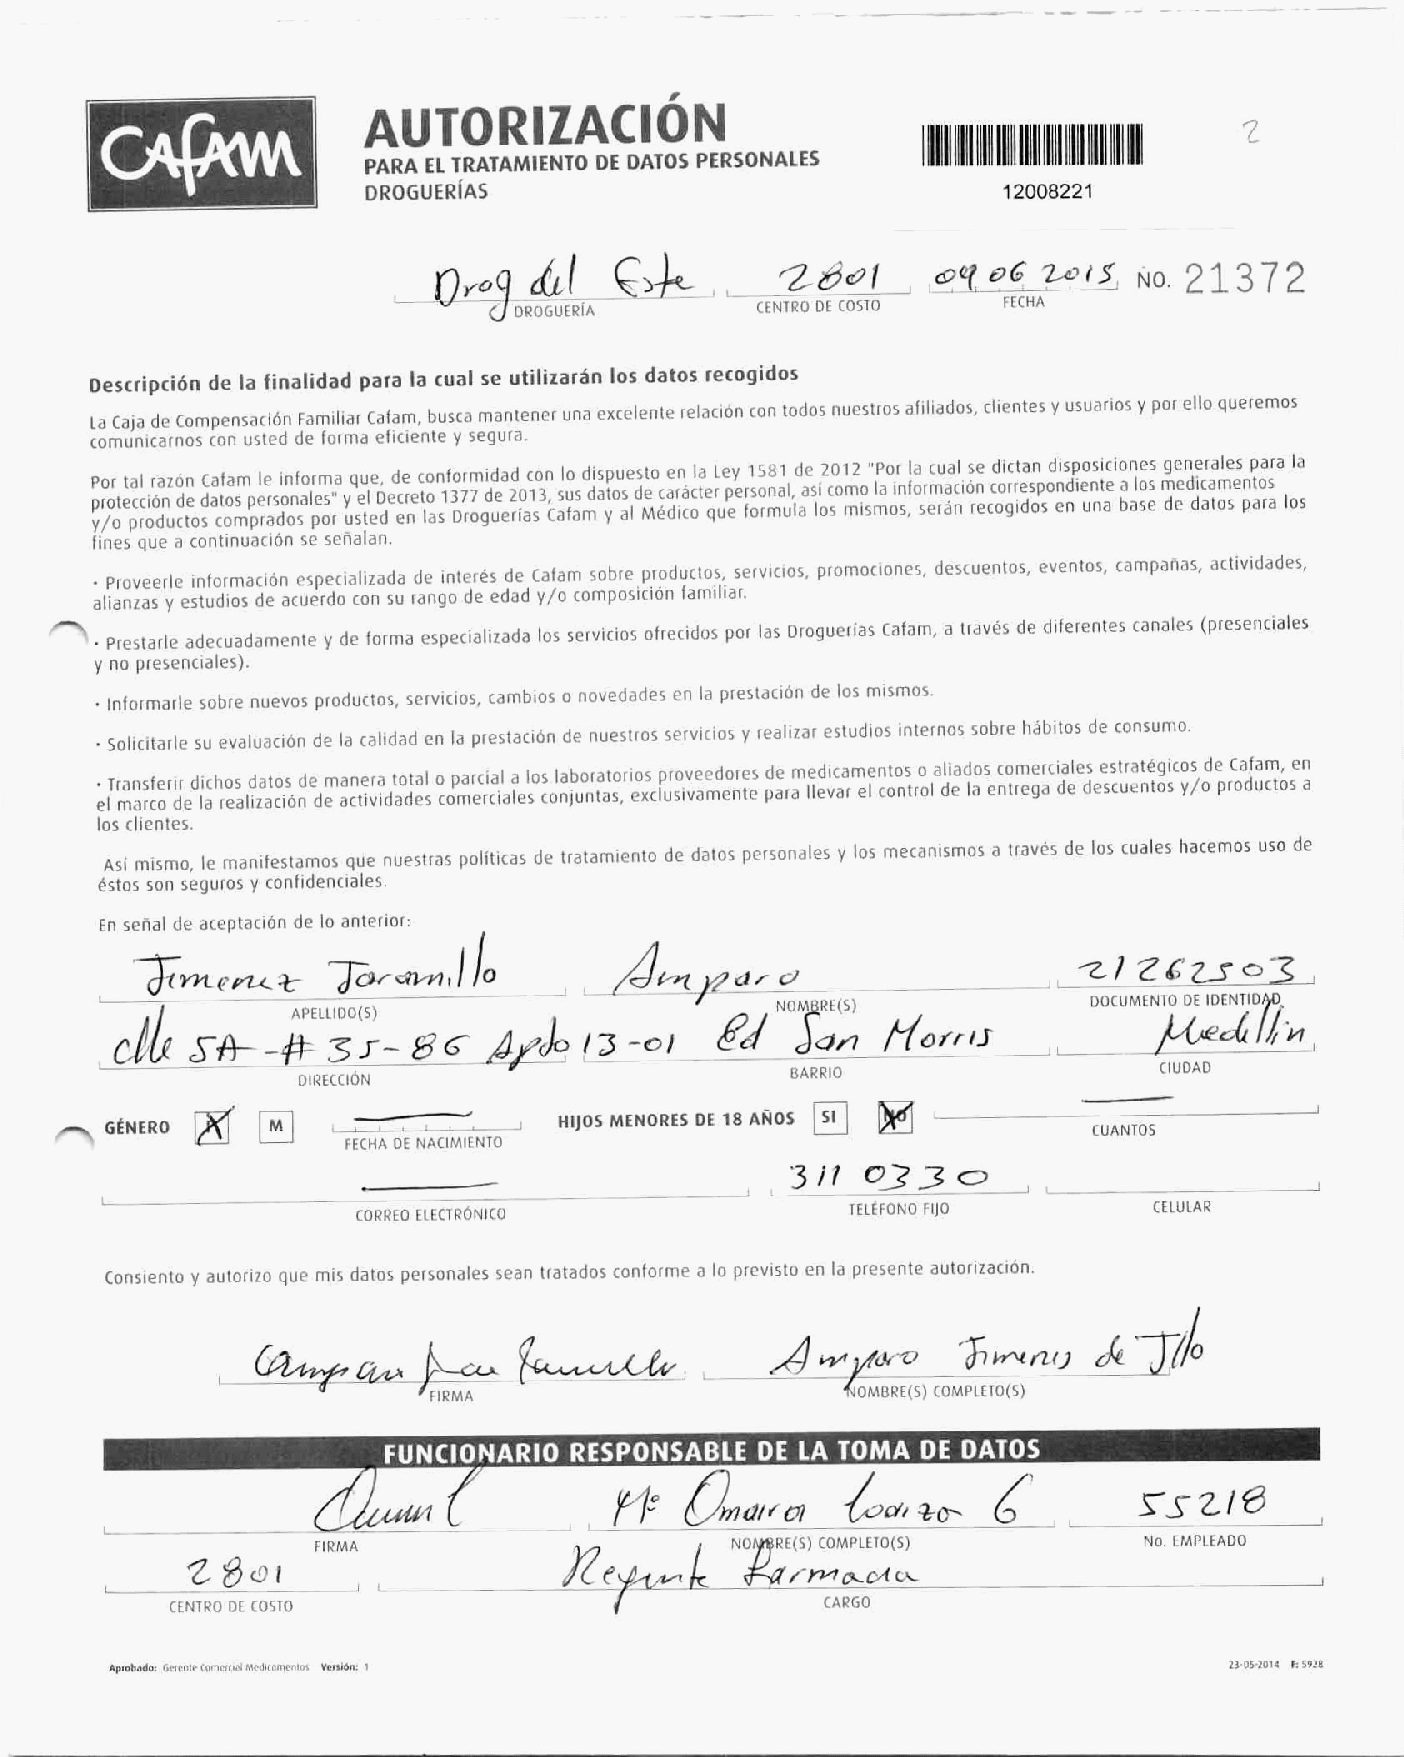 CAFAM
AUTORIZACIÓN
PARA EL TRATAMIENTO DE DATOS PERSONALES
DROGUERÍAS
12008221
2
Drog del Este 2801 09 06 2015 NO. 21372
DROGUERÍA CENTRO DE COSTO FECHA
Descripción de la finalidad para la cual se utilizarán los datos recogidos
La Caja de Compensación Familiar Cafam, busca mantener una excelente relación con todos nuestros afiliados, clientes y usuarios y por ello queremos
comunicarnos con usted de forma eficiente y segura.
Por tal razón Cafam le informa que, de conformidad con lo dispuesto en la Ley 1581 de 2012 "Por la cual se dictan disposiciones generales para la
protección de datos personales" y el Decreto 1377 de 2013, sus datos de carácter personal, así como la información correspondiente a los medicamentos
y/o productos comprados por usted en las Droguerías Cafam y al Médico que formula los mismos, serán recogidos en una base de datos para los
fines que a continuación se señalan.
· Proveerle información especializada de interés de Cafam sobre productos, servicios, promociones, descuentos, eventos, campañas, actividades,
alianzas y estudios de acuerdo con su rango de edad y/o composición familiar.
· Prestarle adecuadamente y de forma especializada los servicios ofrecidos por las Droguerías Cafam, a través de diferentes canales (presenciales
y no presenciales).
· Informarle sobre nuevos productos, servicios, cambios o novedades en la prestación de los mismos.
· Solicitarle su evaluación de la calidad en la prestación de nuestros servicios y realizar estudios internos sobre hábitos de consumo.
· Transferir dichos datos de manera total o parcial a los laboratorios proveedores de medicamentos o aliados comerciales estratégicos de Cafam, en
el marco de la realización de actividades comerciales conjuntas, exclusivamente para llevar el control de la entrega de descuentos y/o productos a
los clientes.
Así mismo, le manifestamos que nuestras políticas de tratamiento de datos personales y los mecanismos a través de los cuales hacemos uso de
éstos son seguros y confidenciales.
En señal de aceptación de lo anterior:
Jimenez Jaramillo Amparo 21262503
APELLIDO(S) NOMBRE(S) DOCUMENTO DE IDENTIDAD
Clle 5A-# 35-86 Apdo 13-01 Ed San Morris Medellin
DIRECCIÓN BARRIO CIUDAD
GÉNERO X M HIJOS MENORES DE 18 AÑOS SI NO
FECHA DE NACIMIENTO CUANTOS
311 0330
CORREO ELECTRÓNICO TELÉFONO FIJO CELULAR
Consiento y autorizo que mis datos personales sean tratados conforme a lo previsto en la presente autorización.
Amparo Jimenes de Jllo
FIRMA NOMBRE(S) COMPLETO(S)
FUNCIONARIO RESPONSABLE DE LA TOMA DE DATOS
Mª Omaira Loaiza G 55218
FIRMA NOMBRE(S) COMPLETO(S) No. EMPLEADO
2801 Regente Farmacia
CENTRO DE COSTO CARGO
Aprobado: Gerente Comercial Medicamentos Versión: 1 23-05-2014 F: 5928